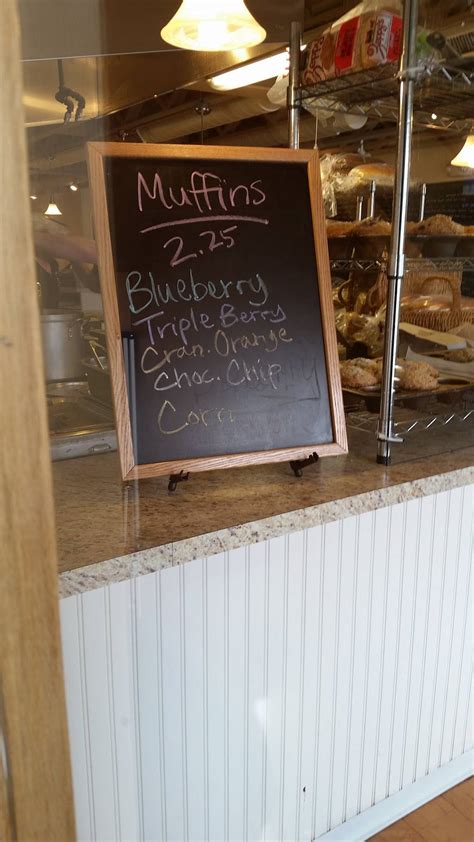 Muffins
2.25
Blueberry
Triple Berry
Cran. Orange
Choc. Chip
Corn